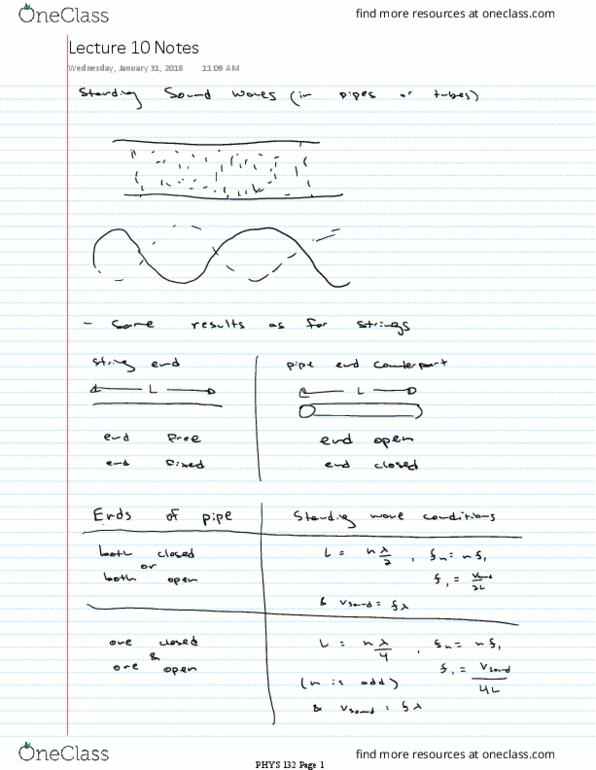 OneClass
find more resources at oneclass.com
Lecture 10 Notes
Wednesday, January 31, 2018 11:09 AM
Standing Sound Waves (in pipes or tubes)
- Same results as for strings
string end
pipe end counterpart
L
L
end free
end open
end fixed
end closed
Ends of pipe
Standing wave conditions
both closed
or
both open
L = nλ/2 , fn = nf1
f1 = Vsound/2L
& Vsound = fλ
one closed
&
one open
L = nλ/4 , fn = nf1
(n is odd)
f1 = Vsound/4L
& Vsound = fλ
OneClass
find more resources at oneclass.com
PHYS 132 Page 1